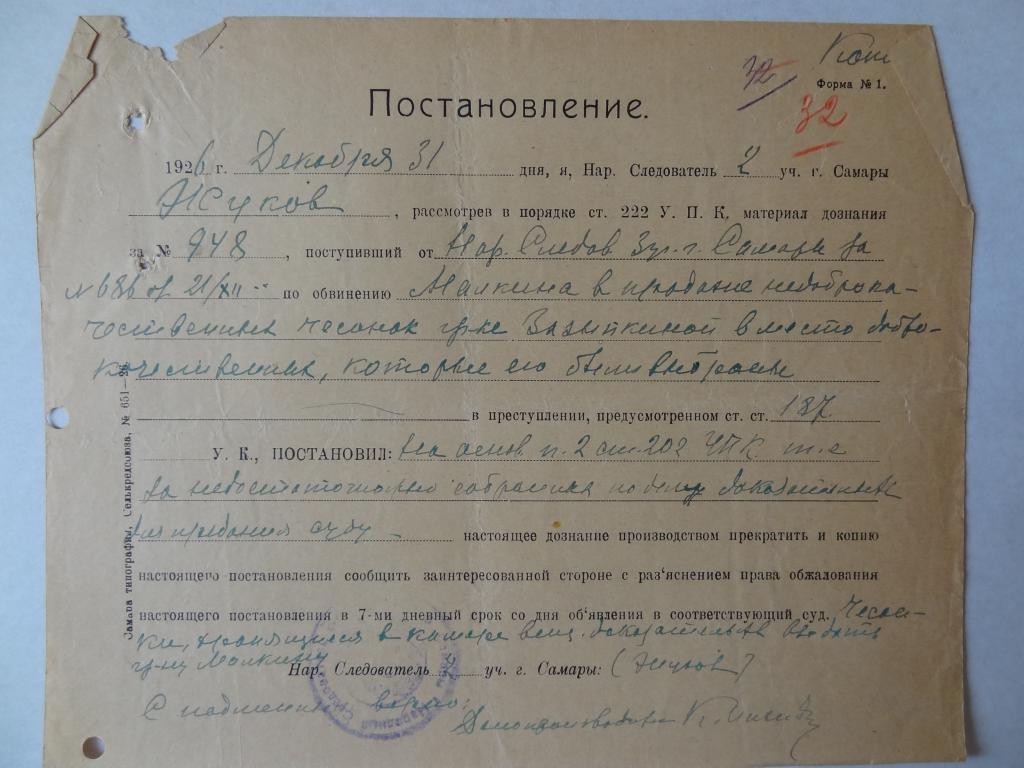 32
Копия
Форма № 1.
32
Постановление.
1926 г. Декабря 31 дня, я, Нар. Следователь 2 уч. г. Самары
Жуков, рассмотрев в порядке ст. 222 У. П. К. материал дознания
за № 948, поступивший от Нар. Следов 3 уч. г. Самары за
№ 686 от 21/XII по обвинению Малкина в продаже недоброка-
чественных чесанок гр-ке Вазыпкиной вместо добро-
качественных, которые ею были выбраны
в преступлении, предусмотренном ст. ст. 187
У. К., ПОСТАНОВИЛ: На основ. п. 2 ст. 202 УПК т. е.
за недостаточностью собранных по делу доказательств
для предания суду настоящее дознание производством прекратить и копию
настоящего постановления сообщить заинтересованной стороне с раз'яснением права обжалования
настоящего постановления в 7-ми дневный срок со дня об'явления в соответствующий суд. Чесан-
ки, хранящиеся в камере вещ. доказательств выдать
гр-ну Малкину
Нар. Следователь 2 уч. г. Самары: (Жуков)
С подлинным верно:
Делопроизводитель
Самара типография, Селькредсоюза, № 651—